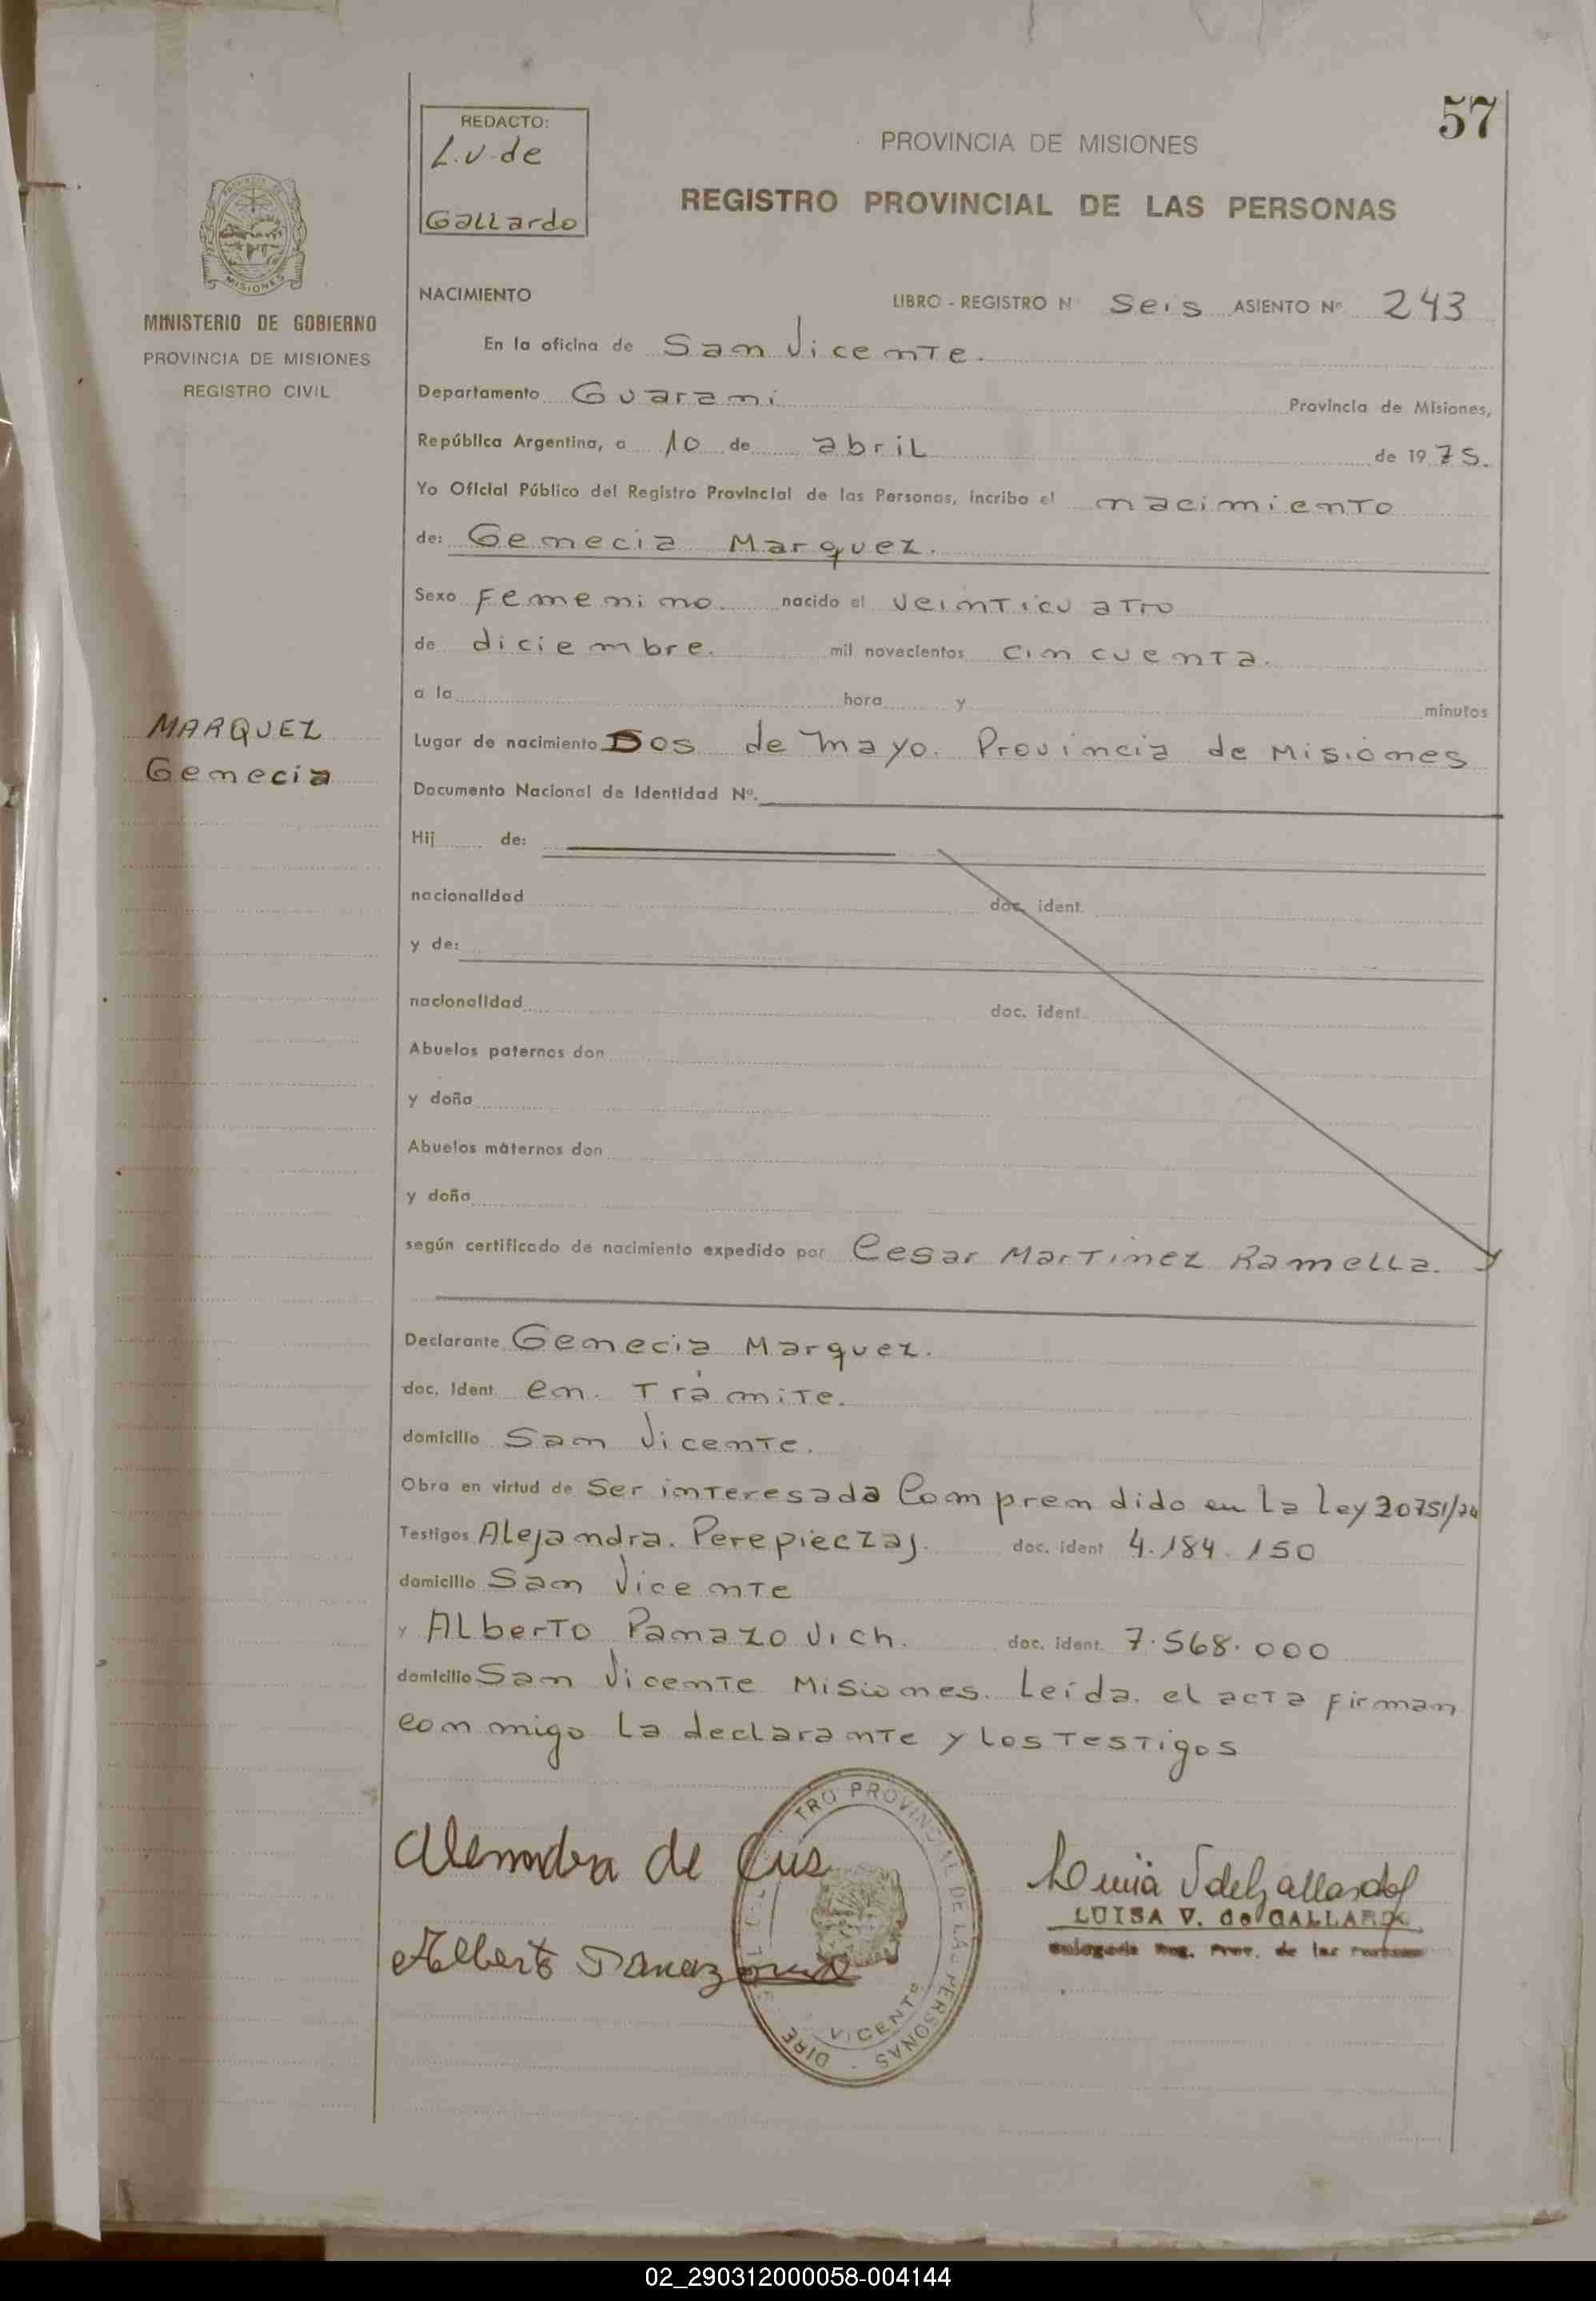 57
REDACTO:
L.V. de
Gallardo
PROVINCIA DE MISIONES
REGISTRO PROVINCIAL DE LAS PERSONAS
MISIONES
MINISTERIO DE GOBIERNO
PROVINCIA DE MISIONES
REGISTRO CIVIL
NACIMIENTO
LIBRO - REGISTRO N° Seis ASIENTO N° 243
En la oficina de San Vicente.
Departamento Guarani Provincia de Misiones,
República Argentina, a 10 de abril de 1975.
Yo Oficial Público del Registro Provincial de las Personas, incribo el nacimiento
de: Genecia Marquez.
Sexo Femenino. nacido el veinticuatro
de diciembre. mil novecientos cincuenta.
a la hora y minutos
MARQUEZ
Genecia
Lugar de nacimiento Dos de Mayo. Provincia de Misiones
Documento Nacional de Identidad N°.
Hij de:
nacionalidad doc. ident.
y de:
nacionalidad doc. ident.
Abuelos paternos don
y doña
Abuelos maternos don
y doña
según certificado de nacimiento expedido por Cesar Martinez Ramella.
Declarante Genecia Marquez.
doc. Ident en. Trámite.
domicilio San Vicente.
Obra en virtud de Ser interesada Comprendido en La Ley 20751/74
Testigos Alejandra. Perepieczaj. doc. ident 4.184.150
domicilio San Vicente
y Alberto Panazovich. doc. ident. 7.568.000
domicilio San Vicente Misiones. Leída. el acta firman
conmigo la declarante y los testigos
TRO PROVINCIAL DE LAS PERSONAS - DIRE
VICENTE
LUISA V. de GALLARDO
Delegada Reg. Prov. de las Personas
02_290312000058-004144